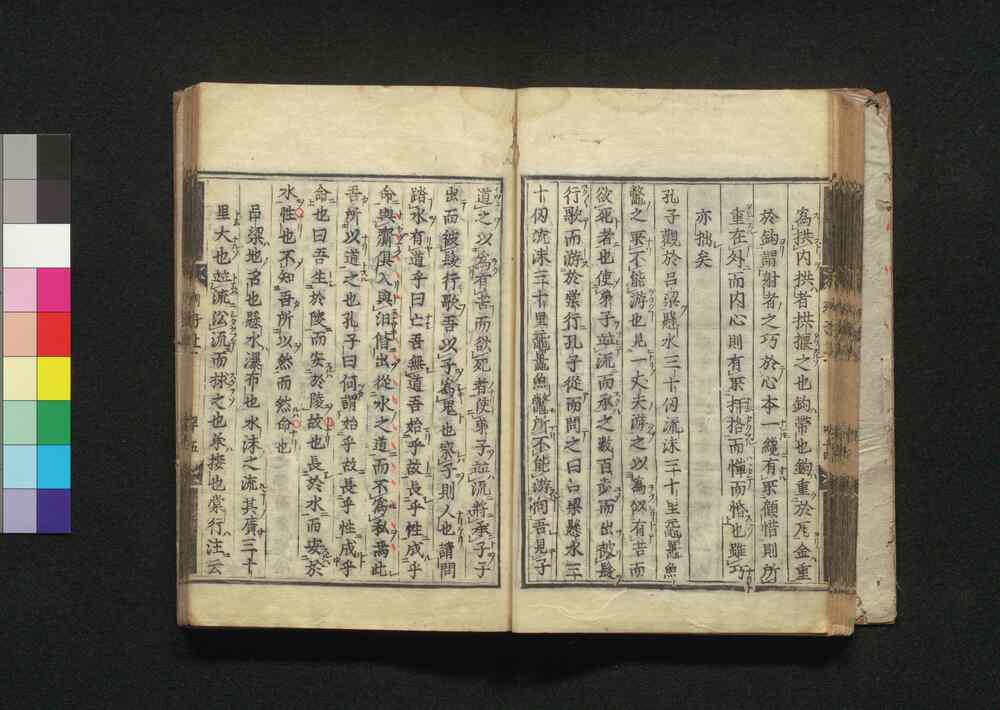 為拱内拱者拱攘之也鈎帶也鈎重於瓦金重
於鈎謂射者之巧於心本一纔有所顧惜則所
重在外而内心則有所扞格而憚而惛也雖巧
亦拙矣
孔子觀於吕梁懸水三十仭流沫三十里黿鼉魚
鼈之所不能游也見一丈夫游之以為似有苦而
欲死者也使弟子並流而承之數百步而出被髮
行歌而游於棠行孔子從而問之曰吕梁懸水三
十仭流沫三十里黿鼉魚鼈所不能游向吾見子
道之以為有苦而欲死者使弟子並流將承子子
出而被髮行歌吾以子為鬼也察子則人也請問
蹈水有道乎曰亡吾無道吾始乎故長乎性成乎
命與齎俱入與汩偕出從水之道而不為私焉此
吾所以道之也孔子曰何謂始乎故長乎性成乎
命也曰吾生於陵而安於陵故也長於水而安於
水性也不知吾所以然而然命也
吕梁地名也懸水瀑布也水沫之流其廣三十
里大也並流沿流而拯之也承接也棠行注云